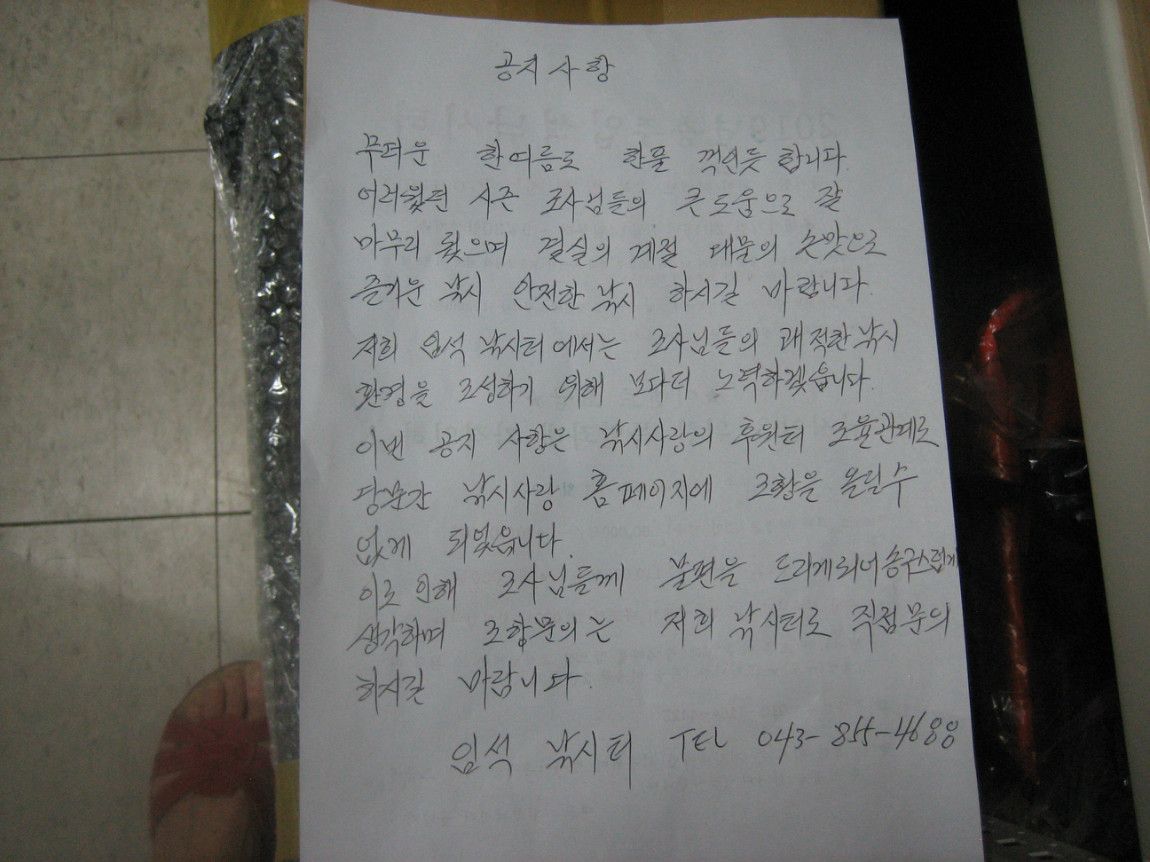 공지사항
무더운 한여름도 한풀 꺽인듯 합니다.
어려웠던 시즌 조사님들의 큰 도움으로 잘
마무리 됬으며 결실의 계절 대물의 손맛으로
즐거운 낚시 안전한 낚시 하시길 바랍니다.
저희 임석 낚시터에서는 조사님들의 쾌적한 낚시
환경을 조성하기 위해 보다더 노력하겠습니다.
이번 공지 사항은 낚시사랑의 후원터 조율관계로
당분간 낚시사랑 홈페이지에 조황을 올릴수
없게 되었습니다.
이로 인해 조사님들께 불편을 드리게되어 송구스럽게
생각하며 조황문의는 저희 낚시터로 직접문의
하시길 바랍니다.
임석 낚시터 TEL 043-855-4688